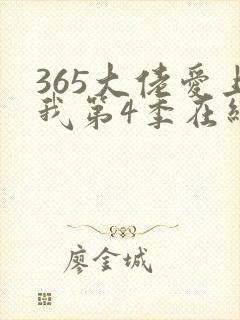 365大佬爱上
我第4季在线
廖金城